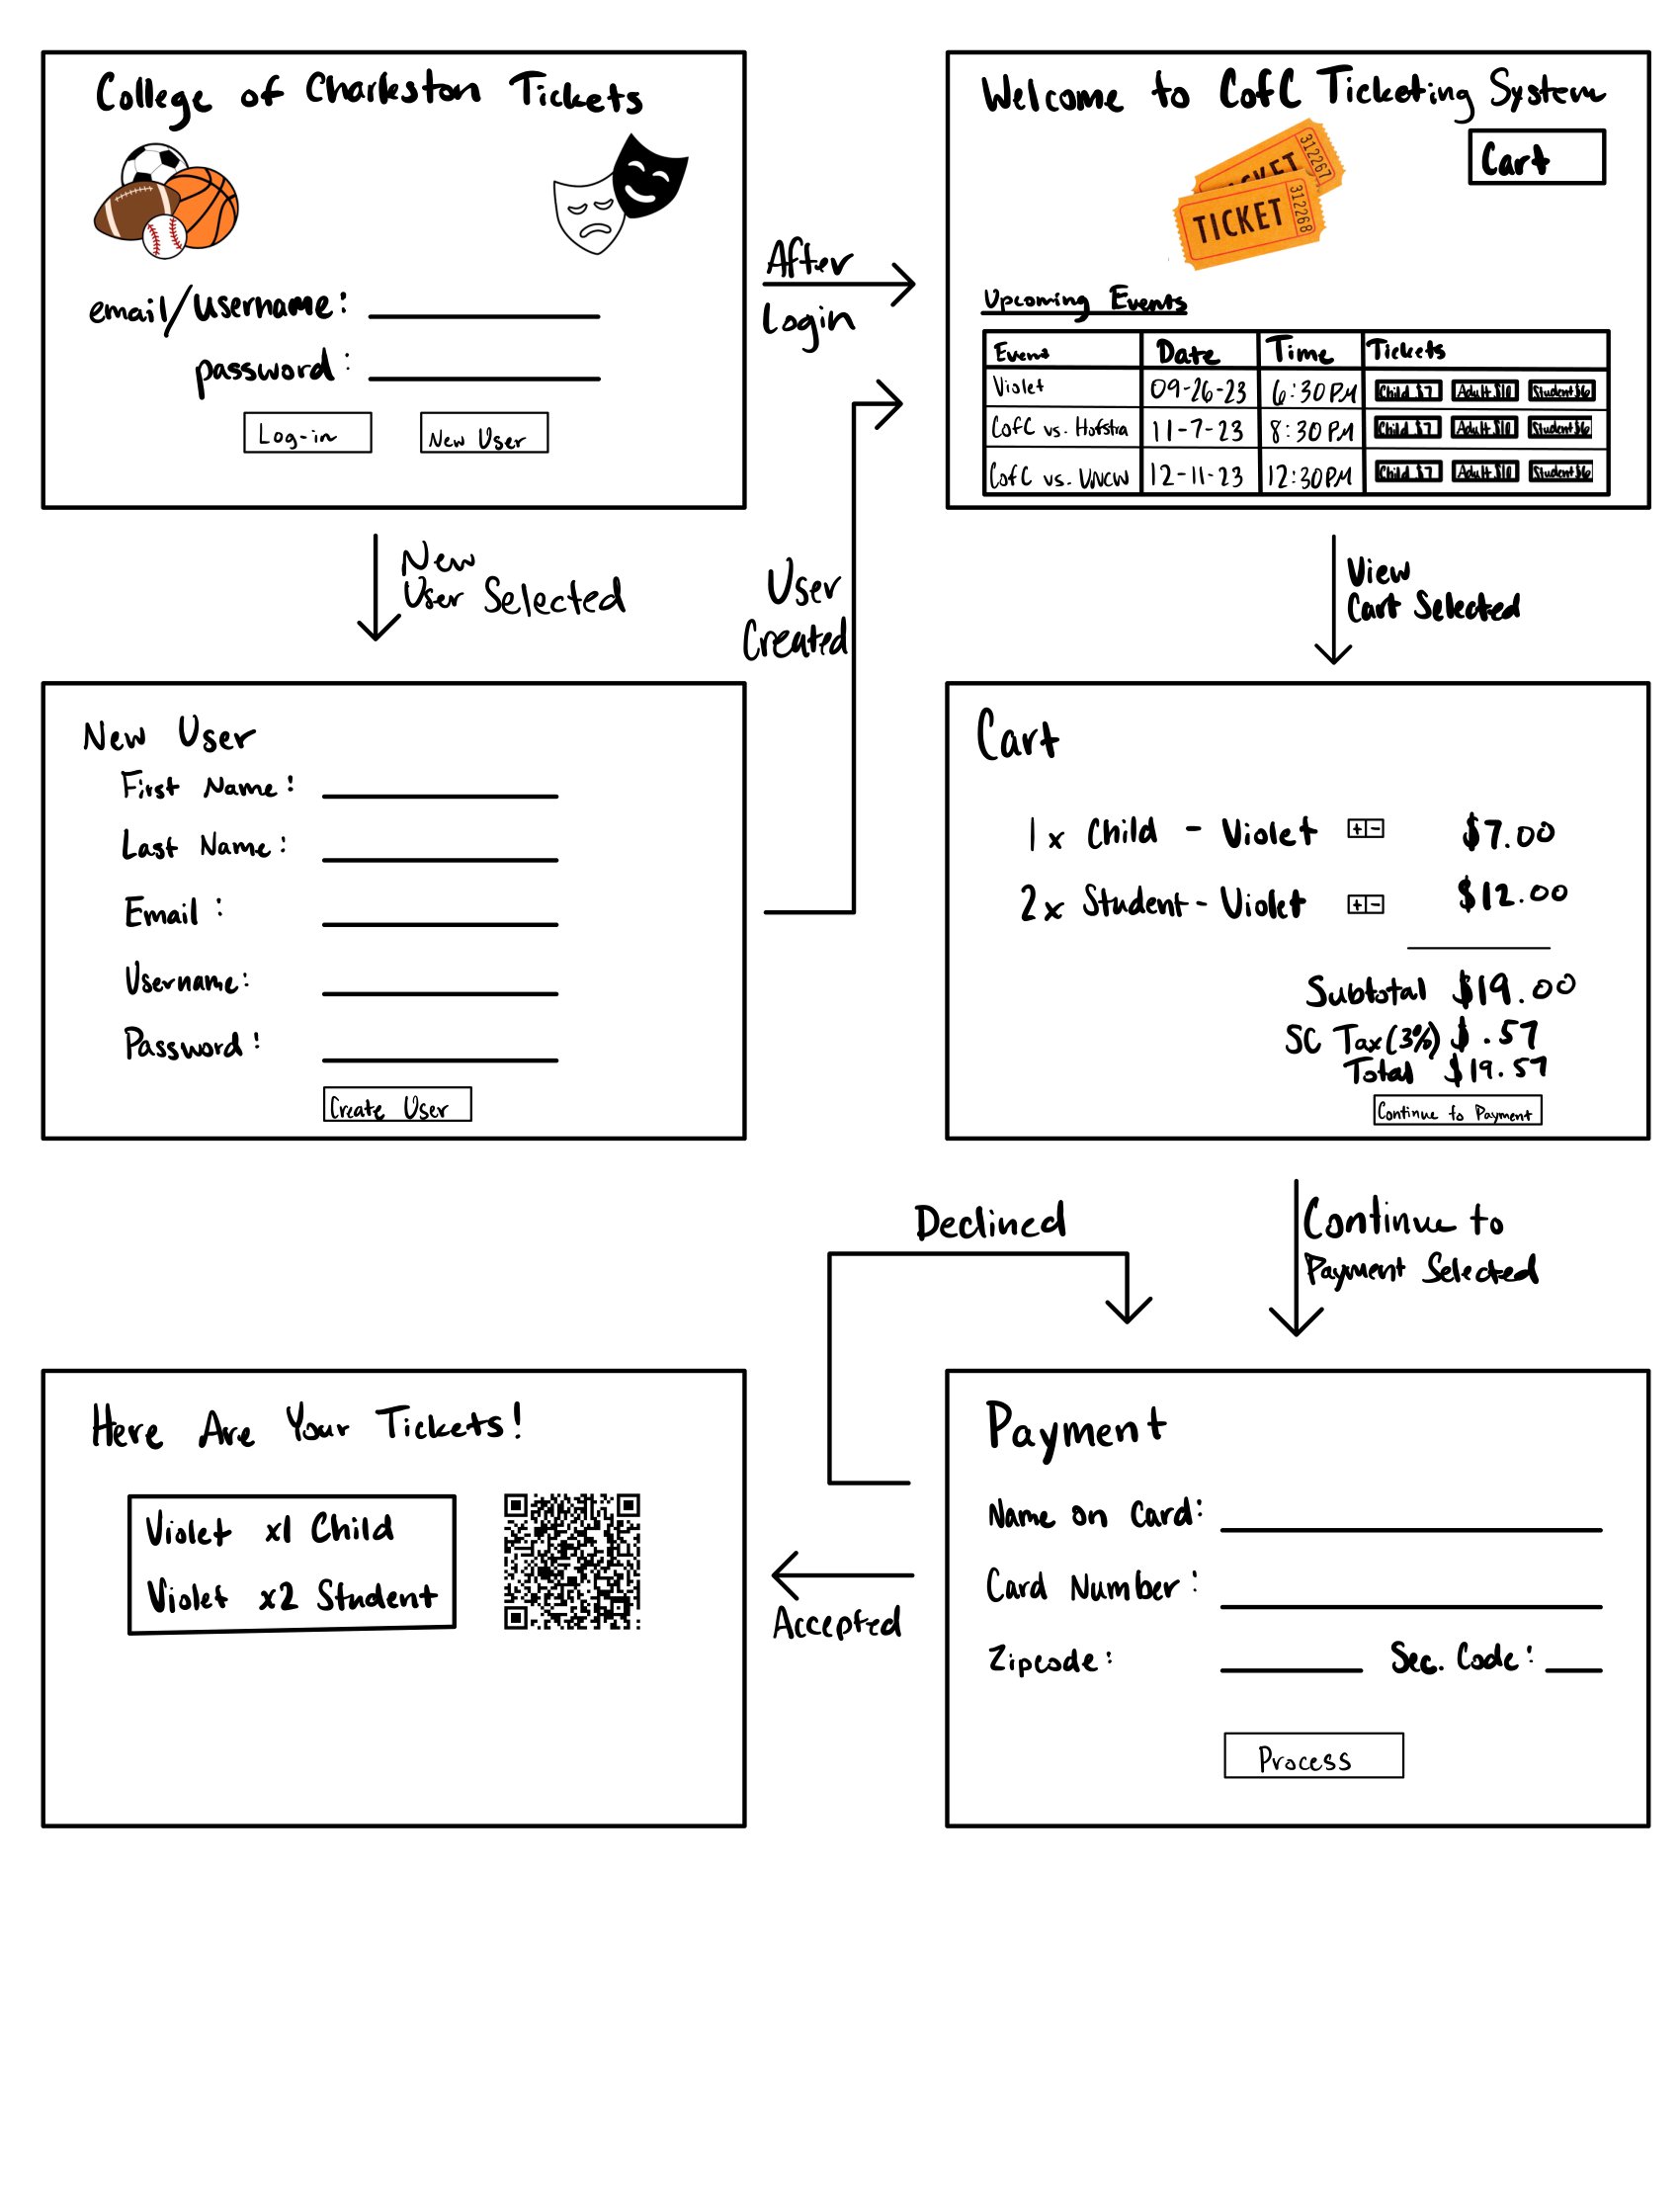 College of Charleston Tickets
email/username:
password:
Log-in
New User
After
Login
Welcome to CofC Ticketing System
Cart
TICKET 312267
TICKET 312268
Upcoming Events
Event Date Time Tickets
Violet 09-26-23 6:30 PM Child $7 Adult $10 Student $6
CofC vs. Hofstra 11-7-23 8:30 PM Child $7 Adult $10 Student $6
CofC vs. UNCW 12-11-23 12:30 PM Child $7 Adult $10 Student $6
New
User Selected
User
Created
View
Cart Selected
New User
First Name:
Last Name:
Email:
Username:
Password:
Create User
Cart
1x Child - Violet +- $7.00
2x Student - Violet +- $12.00
Subtotal $19.00
SC Tax (3%) $.57
Total $19.57
Continue to Payment
Declined
Continue to
Payment Selected
Here Are Your Tickets!
Violet x1 Child
Violet x2 Student
Accepted
Payment
Name on Card:
Card Number:
Zipcode: Sec. Code:
Process